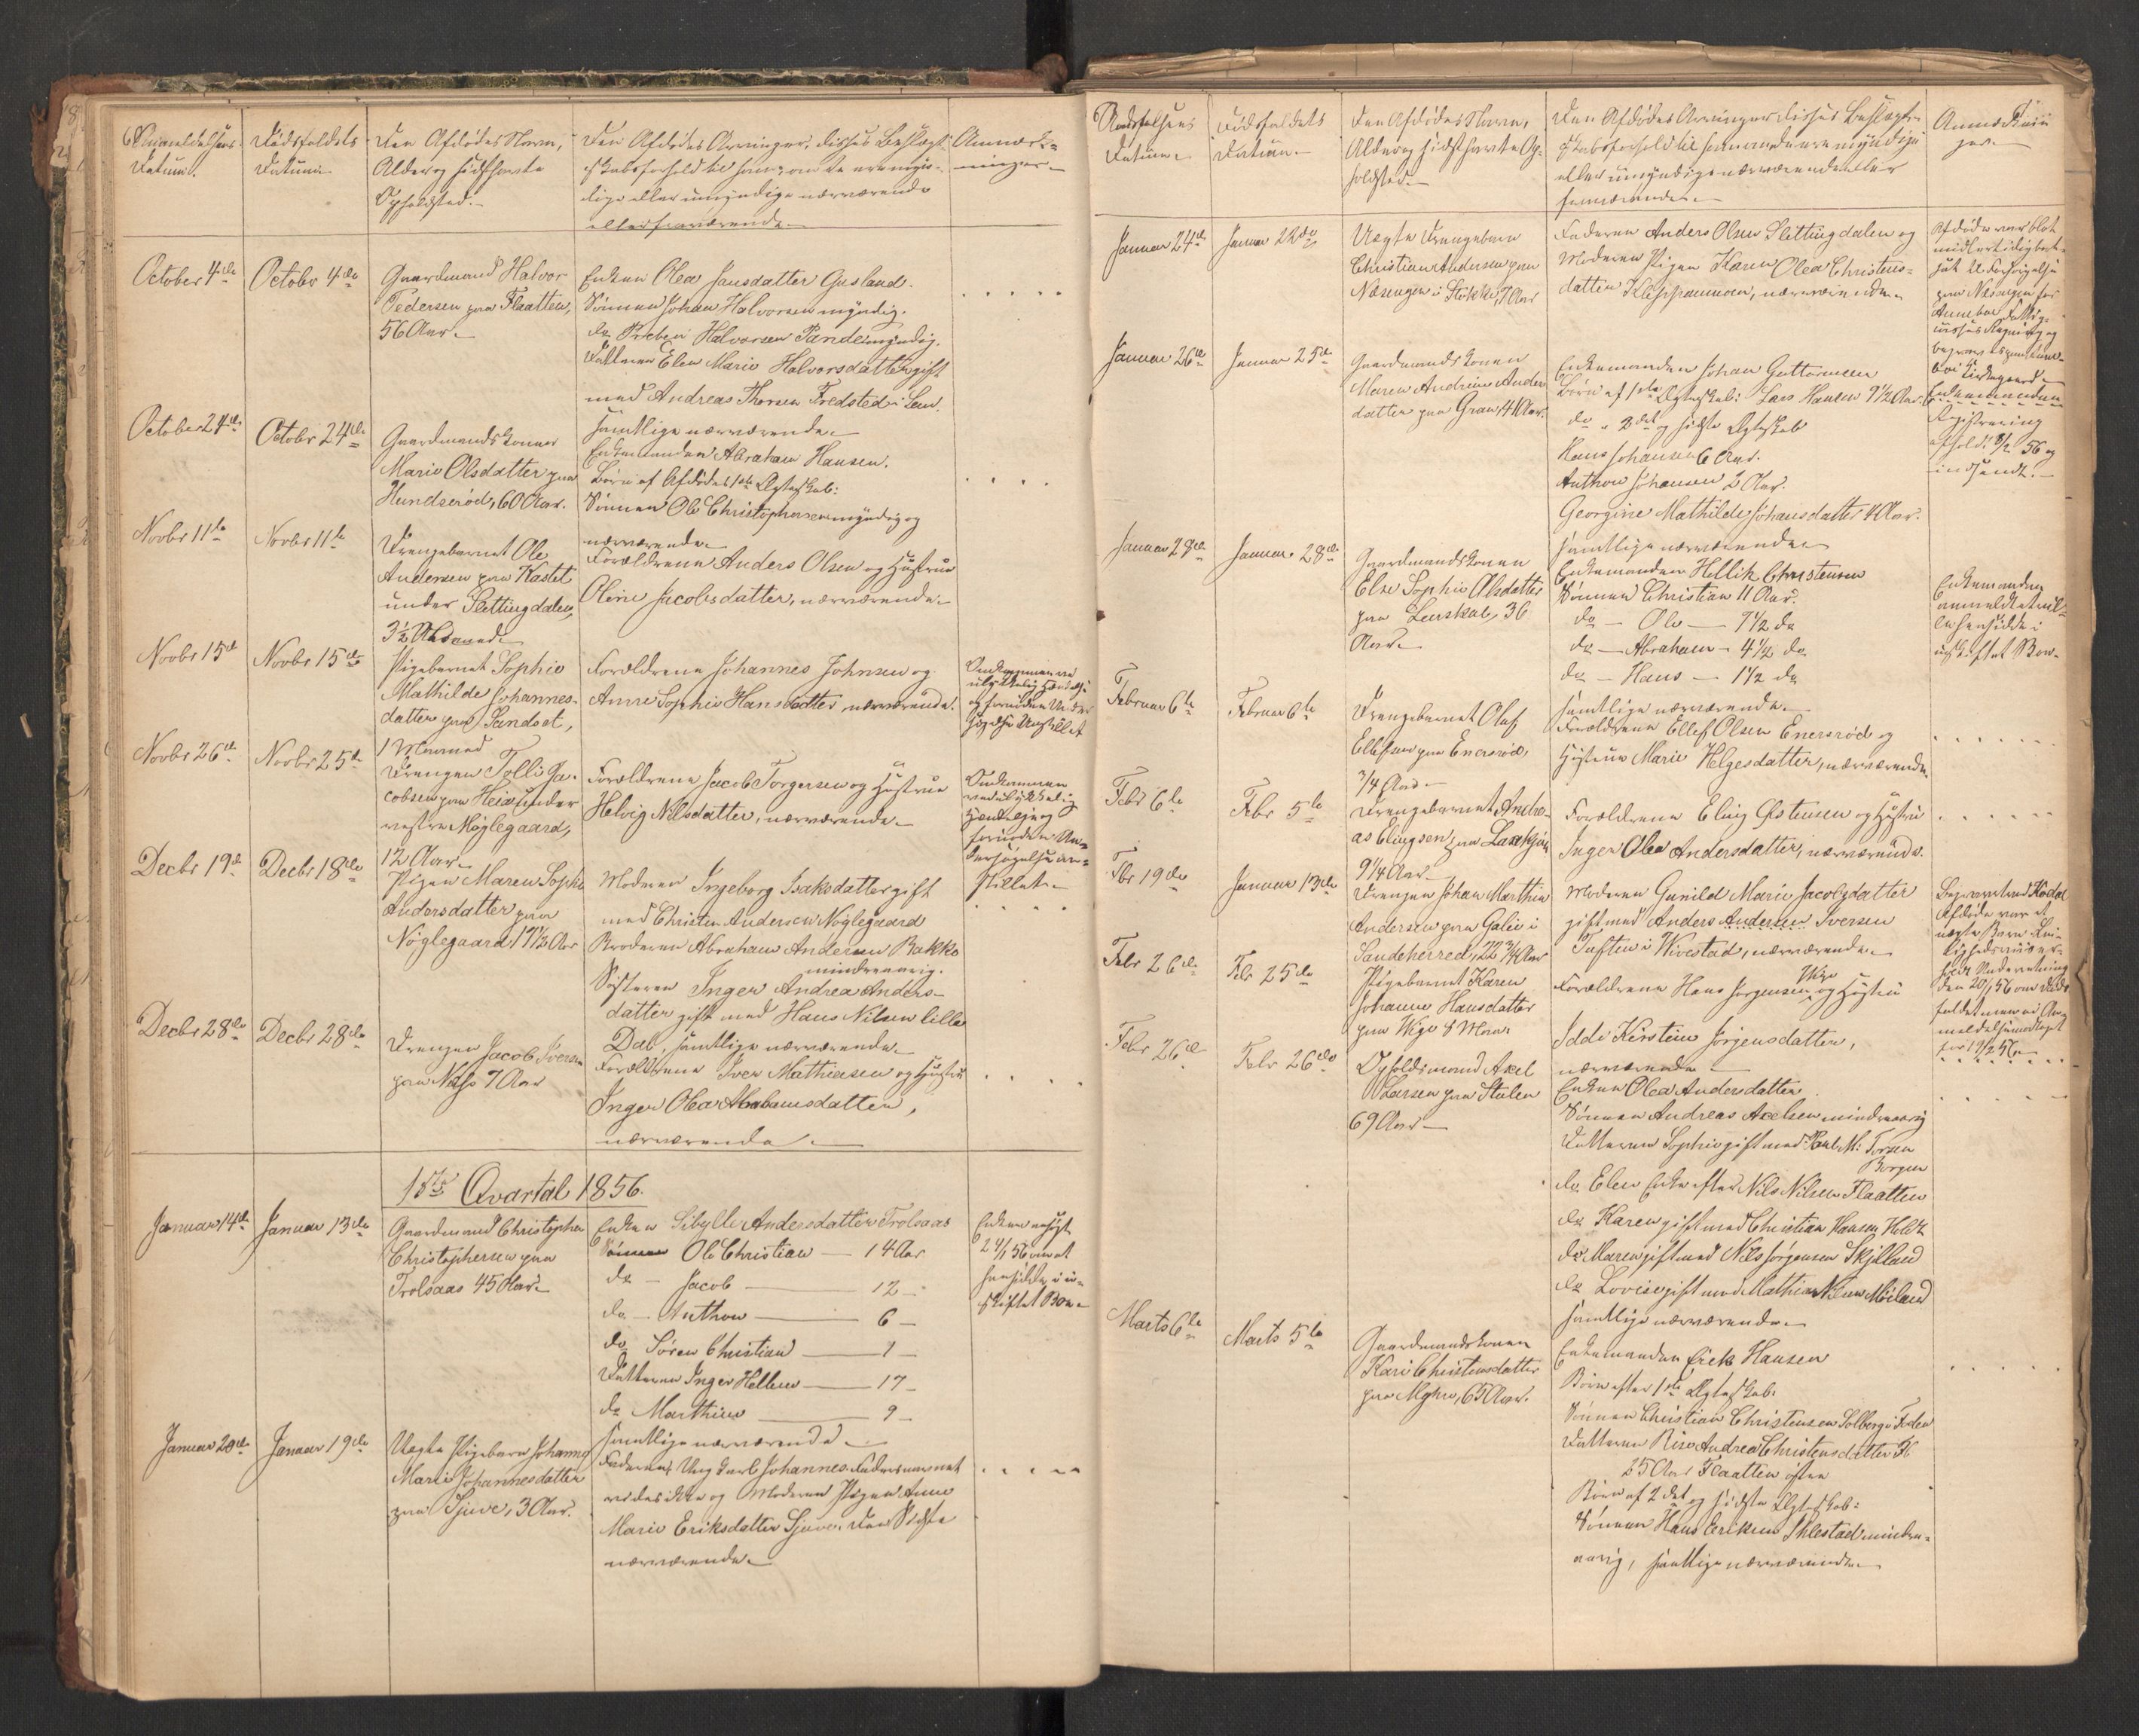 Anmeldelsens Datum.
Dødsfaldets Datum
Den Afdødes Navn,
Alder og sidst havte
Opholdsted.
Den Afdødes Arvinger, disses Beslægt-
skabsforhold til ham, om de ere myn-
dige eller umyndige nærværende
eller fraværende
Anmærk-
ninger
October 4de
October 4de
Gaardmand Halvor
Pedersen paa Flaatten,
56 Aar.
Enken Olea Jansdatter Gusland.
Sønnen Johan Halvorsen myndig.
do Preben Halvorsen Sande myndig.
Datteren Elen Marie Halvorsdatter gift
med Andreas Thorsen Fredsted i
samtlige nærværende
October 24de
Octobr 24de
Gaardmandskonen
Marie Olsdatter paa
Hundserød, 60 Aar.
Enkemanden Abraham Hansen.
Børn af Afdødes 1ste Ægteskab:
Sønnen Ole Christophersen myndig og
nærværende
Novbr 11te
Novbr 11te
Drengebarnet Ole
Andersen paa Kastet
under Slettingdalen,
3½ Maaned
Forældrene Anders Olsen og Hustrue
Oline Jacobsdatter, nærværende
Novbr 15de
Novbr 15de
Pigebarnet Sophie
Mathilde Johannes-
datter paa Sandset,
1 Maaned
Forældrene Johannes Johnsen og
Anne Sophie Hansdatter nærværende.
Omkommen ved
ulykkelig Hændelse
og foreniden Under
søgelse Anstillet
Novbr 26de
Novbr 25de
Drengen Tolli Ja-
cobsen paa Heia under
vestre Nøglegaard,
12 Aar
Forældrene Jacob Torgersen og Hustrue
Helvig Nilsdatter, nærværende
Omkommen
ved ulykkelig
Hændelse og
foreniden Un-
dersøgelse an-
stillet
Decbr 19de
Decbr 18de
Pigen Maren Sophie
Andersdatter paa
Nøglegaard 17½ Aar
Moderen Ingeborg Isaksdatter gift
med Christen Andersen Nøglegaard
Broderen Abraham Andersen Bakke
mindreaarig.
Søsteren Inger Andrea Anders-
datter gift med Hans Nilsen lille
Dal, samtlige nærværende
Decbr 28de
Decbr 28de
Drengen Jacob Iversen
paa Næss 7 Aar
Forældrene Iver Mathiesen og Hustrue
Inger Olea Abrahamsdatter,
nærværende
1ste Qvartal 1856.
Januar 14de
Januar 13de
Gaardmand Christopher
Christophersen paa
Trolsaas 45 Aar
Enken Sibylle Andersdatter Trolsaas
Sønnen Ole Christian — 14 Aar
do — Jacob — 12 —
do — Anthon — 6 —
do Søren Christian — 1 —
Datteren Inger Hellene — 17 —
do Marthine — 9 —
samtlige nærværende
Enken ansøgt
24/1 56 om at
hensidde i u-
skiftet Boe
Januar 20de
Januar 19de
Uægte Pigebarn Johanne
Marie Johannesdatter
paa Sjuve, 3 Aar.
Faderen Ungkarl Johannes Fadersnavnet
vides ikke og Moderen Pigen Anne
Marie Eriksdatter Sjuve. Den Sidste
nærværende
Anmeldelsens
Datum
Dødsfaldets
Datum
Den Afdødes Navn,
Alder og sidst havte Op-
holdsted
Den Afdødes Arvinger disses Beslægt-
skabsforhold til ham om de ere myndige
eller umyndige nærværende eller
fraværende
Anmærknin-
ger
Januar 24de
Januar 22de
Uægte Drengebarn
Christian Andersen paa
Næsengen i Stokke, 7 Aar
Faderen Anders Olsen Slettingdalen og
Moderen Pigen Karen Olea Christens-
datter Kleppanmoen, nærværende
Afdøde var blot
midlertidig bort-
sat til Forsørgelse
paa Næsengen for
Andebu Fattig-
væsens Regning og
Kirkegaard
Januar 26de
Januar 25de
Gaardmandskonen
Maren Andrine Anders
datter paa Gran, 41 Aar.
Enkemanden Johan Guttormsen
Børn af 1ste Ægteskab: Lars Hansen 9½ Aar.
do " 2det og sidste Ægteskab
Hans Johansen 6 Aar.
Anthon Johansen 2 Aar.
Georgine Mathilde Johansdatter 4 Aar.
samtlige nærværende
Enkemanden
Registrering
afholdt 8/2 56 og
indsendt.
Januar 28de
Januar 28de
Gaardmandskonen
Else Sophie Olsdatter
paa Lerskal, 36
Aar
Enkemanden Hellik Christensen
Sønnen Christian 11 Aar.
do — Ole — 7½ do
do — Abraham — 4½ do
do — Hans — 1½ do
samtlige nærværende
Enkemanden
anmeldt at vil-
le hensidde i
uskiftet Boe
Februar 6te
Februar 6te
Drengebarnet Olaf
Ellefsen paa Enersrød,
3/4 Aar
Forældrene Ellef Olsen Enersrød og
Hustrue Marie Helgesdatter, nærværende
Febr 6te
Febr 5te
Drengebarnet Andre-
as Elingsen paa
9¼ Aar
Forældrene Eling Østensen og Hustrue
Inger Olea Andersdatter, nærværende.
Fbr 19de
Januar 13de
Drengen Johan Marthin
Andersen paa Galin i
Sandeherred, 22 3/4 Aar
Moderen Gunild Marie Jacobsdatter
gift med Anders Andersen Iversen
Tuften i Hvestad, nærværende
Begravet ved Kodal
Afdøde var
Underretning
den 20/1 56 om Døds-
faldet men ei An-
meldelse modtaget
før 19/2 56
Febr 26de
Febr 25de
Pigebarnet Karen
Johanne Hansdatter
paa Wige 8 Maan
Forældrene Hans Jørgensen Wige og Hustrue
Idde Kirstine Jørgensdatter,
nærværende
Febr 26de
Febr 26de
Opholdsmand Axel
Larsen paa Stulen
69 Aar
Enken Olea Andersdatter
Sønnen Andreas Axelsen mindreaarig
Datteren Sophie gift med Paul M: Torsen
Borgen
do Elen Enke efter Nils Nilsen Flaatten
do Karen gift med Christian Hansen Holt
do Maren gift med Nils Jørgensen Skjelland
do Lovise gift med Mathias Nilsen Møiland
samtlige nærværende
Marts 6te
Marts 5te
Gaardmandskonen
Kari Christensdatter
paa Myhre, 65 Aar.
Enkemanden Erik Hansen
Børn efter 1ste Ægteskab.
Sønnen Christian Christensen Solberg i Foden
Datteren Andrea Christensdatter
25 Aar Flaatten østre
Børn af 2det og sidste Ægteskab:
Sønnen Hans Eriksen Ihlestad mindre-
aarig, samtlige nærværende